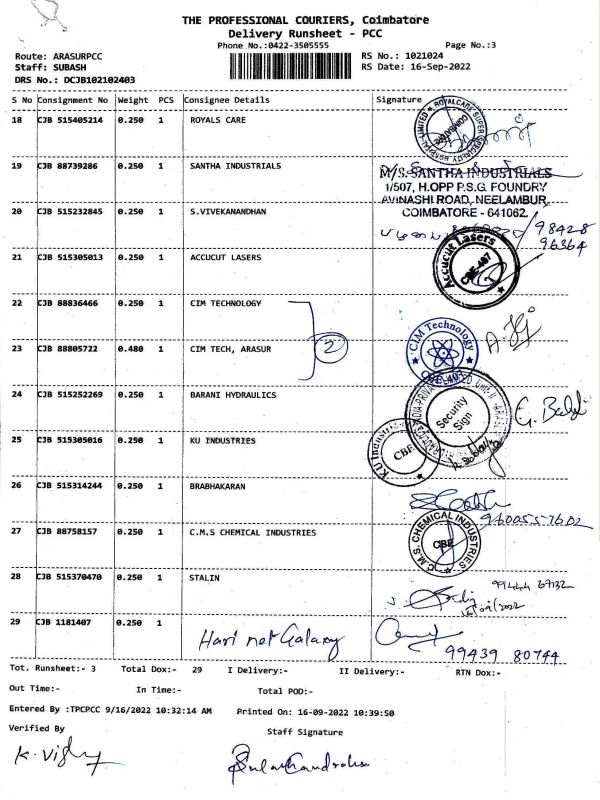 THE PROFESSIONAL COURIERS, Coimbatore
Delivery Runsheet - PCC
Phone No.:0422-3505555 Page No.:3
Route: ARASURPCC RS No.: 1021024
Staff: SUBASH RS Date: 16-Sep-2022
DRS No.: DCJB102102403
S No Consignment No Weight PCS Consignee Details Signature
18 CJB 515405214 0.250 1 ROYALS CARE
19 CJB 88739286 0.250 1 SANTHA INDUSTRIALS
M/S. SANTHA INDUSTRIALS
1/507, H.OPP P.S.G. FOUNDRY
AVINASHI ROAD, NEELAMBUR
COIMBATORE - 641062
20 CJB 515232845 0.250 1 S.VIVEKANANDHAN
98428
96364
21 CJB 515305013 0.250 1 ACCUCUT LASERS
Accucut Lasers
CBE-407
22 CJB 88836466 0.250 1 CIM TECHNOLOGY
2
23 CJB 88805722 0.480 1 CIM TECH, ARASUR
CIM Technology
24 CJB 515252269 0.250 1 BARANI HYDRAULICS
Security
Sign
25 CJB 515305016 0.250 1 KU INDUSTRIES
KU Industries
CBE
26 CJB 515314244 0.250 1 BRABHAKARAN
960055-7602
27 CJB 88758157 0.250 1 C.M.S CHEMICAL INDUSTRIES
C.M.S. CHEMICAL INDUSTRIES
CBE
28 CJB 515370470 0.250 1 STALIN
99444 67132
29 CJB 1181407 0.250 1
Hari net Galaxy
99439 80744
Tot. Runsheet:- 3 Total Dox:- 29 I Delivery:- II Delivery:- RTN Dox:-
Out Time:- In Time:- Total POD:-
Entered By :TPCPCC 9/16/2022 10:32:14 AM Printed On: 16-09-2022 10:39:50
Verified By Staff Signature
K. Vighy